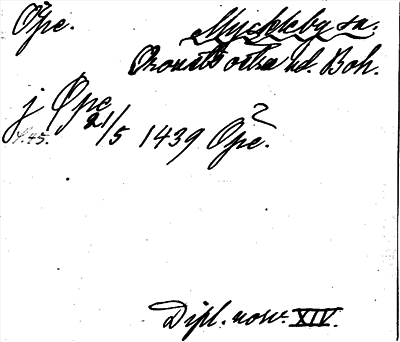 Öpe. Myckleby sn.
Orousts östra hd. Boh.
j Øpe 21/5 1439 Öpe. ?
S. 45.
Dipl. norv. XIV.